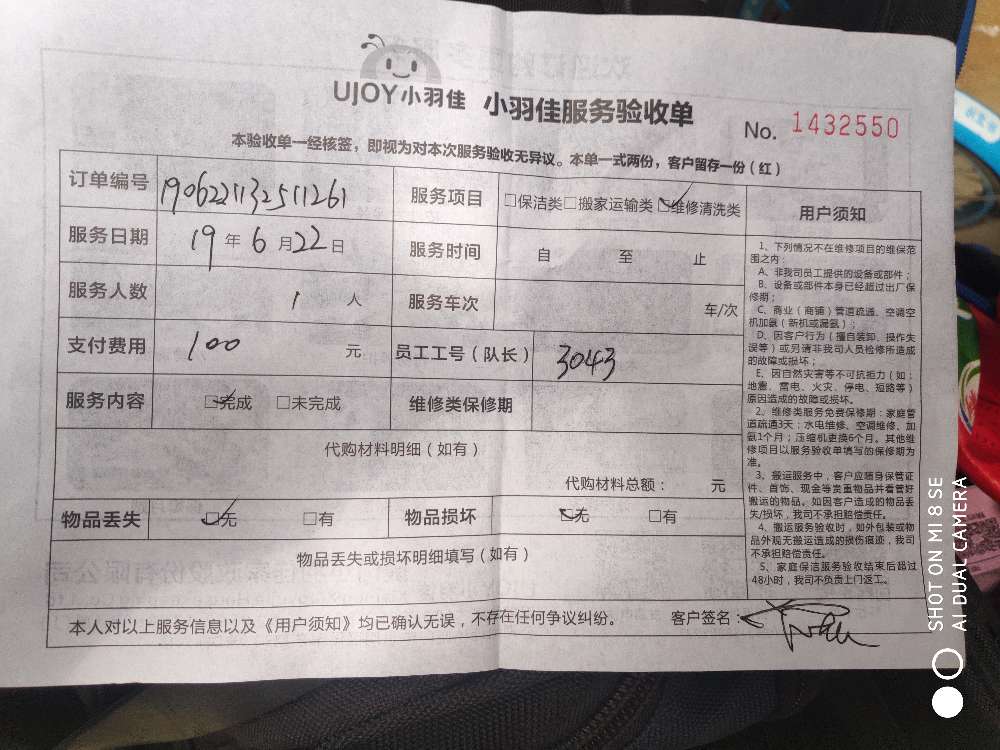 UJOY小羽佳 小羽佳服务验收单
No. 1432550
本验收单一经核签，即视为对本次服务验收无异议。本单一式两份，客户留存一份（红）
订单编号 190622113251126 1 服务项目 □保洁类□搬家运输类□维修清洗类
服务日期 19年6月22日 服务时间 自 至 止
服务人数 1 人 服务车次 车/次
支付费用 100 元 员工工号（队长） 3043
服务内容 □完成 □未完成 维修类保修期
代购材料明细（如有）
代购材料总额： 元
物品丢失 □无 □有 物品损坏 □无 □有
物品丢失或损坏明细填写（如有）
本人对以上服务信息以及《用户须知》均已确认无误，不存在任何争议纠纷。 客户签名：
用户须知
1、下列情况不在维修项目的维保范
围之内：
A、非我司员工提供的设备或部件；
B、设备或部件本身已经超过出厂保
修期；
C、商业（商铺）管道疏通、空调空
机加氨（新机或漏氨）；
D、因客户行为（擅自装卸、操作失
误等）或另请非我司人员检修所造成
的故障或损坏；
E、因自然灾害等不可抗拒力（如：
地震、雷电、火灾、停电、短路等）
原因造成的故障或损坏。
2、维修类服务免费保修期：家庭管
道疏通3天；水电维修、空调维修、加
氨1个月；压缩机更换6个月。其他维
修项目以服务验收单填写的保修期为
准。
3、搬运服务中，客户应随身保管证
件、首饰、现金等贵重物品并看管好
搬运的物品。如因客户造成的物品丢
失/损坏，我司不承担赔偿责任。
4、搬运服务验收时，如外包装或物
品外观无搬运造成的损伤痕迹，我司
不承担赔偿责任。
5、家庭保洁服务验收结束后超过
48小时，我司不负责上门返工。
SHOT ON MI 8 SE
AI DUAL CAMERA